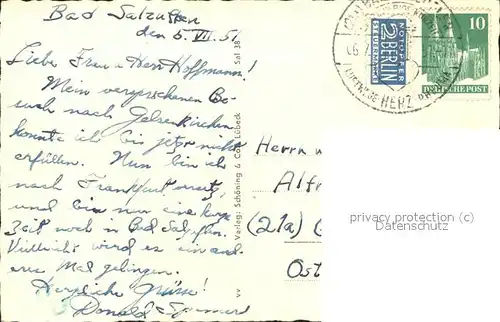 Bad Salzuflen
den 5. VII. 51.
Liebe Frau u Herr Hoffmann!
Mein versprochenen Be-
such nach Gelsenkirchen
konnte ich bis jetzt nicht
erfüllen. Nun bin ich
nach Frankfurt versetzt,
und bin nur eine kurze
Zeit noch in Bad Salzuflen.
Vielleicht wird es ein and-
eres Mal gelingen.
Herzliche Grüsse!
Donald
Sal 38
Verlag: Schöning & Co., Lübeck
VV
NOTOPFER
2 BERLIN
STEUERMARKE
10
DEUTSCHE POST
HERZ
Herrn
Alfr
(21a) (
Ost
privacy protection (c)
Datenschutz (c)